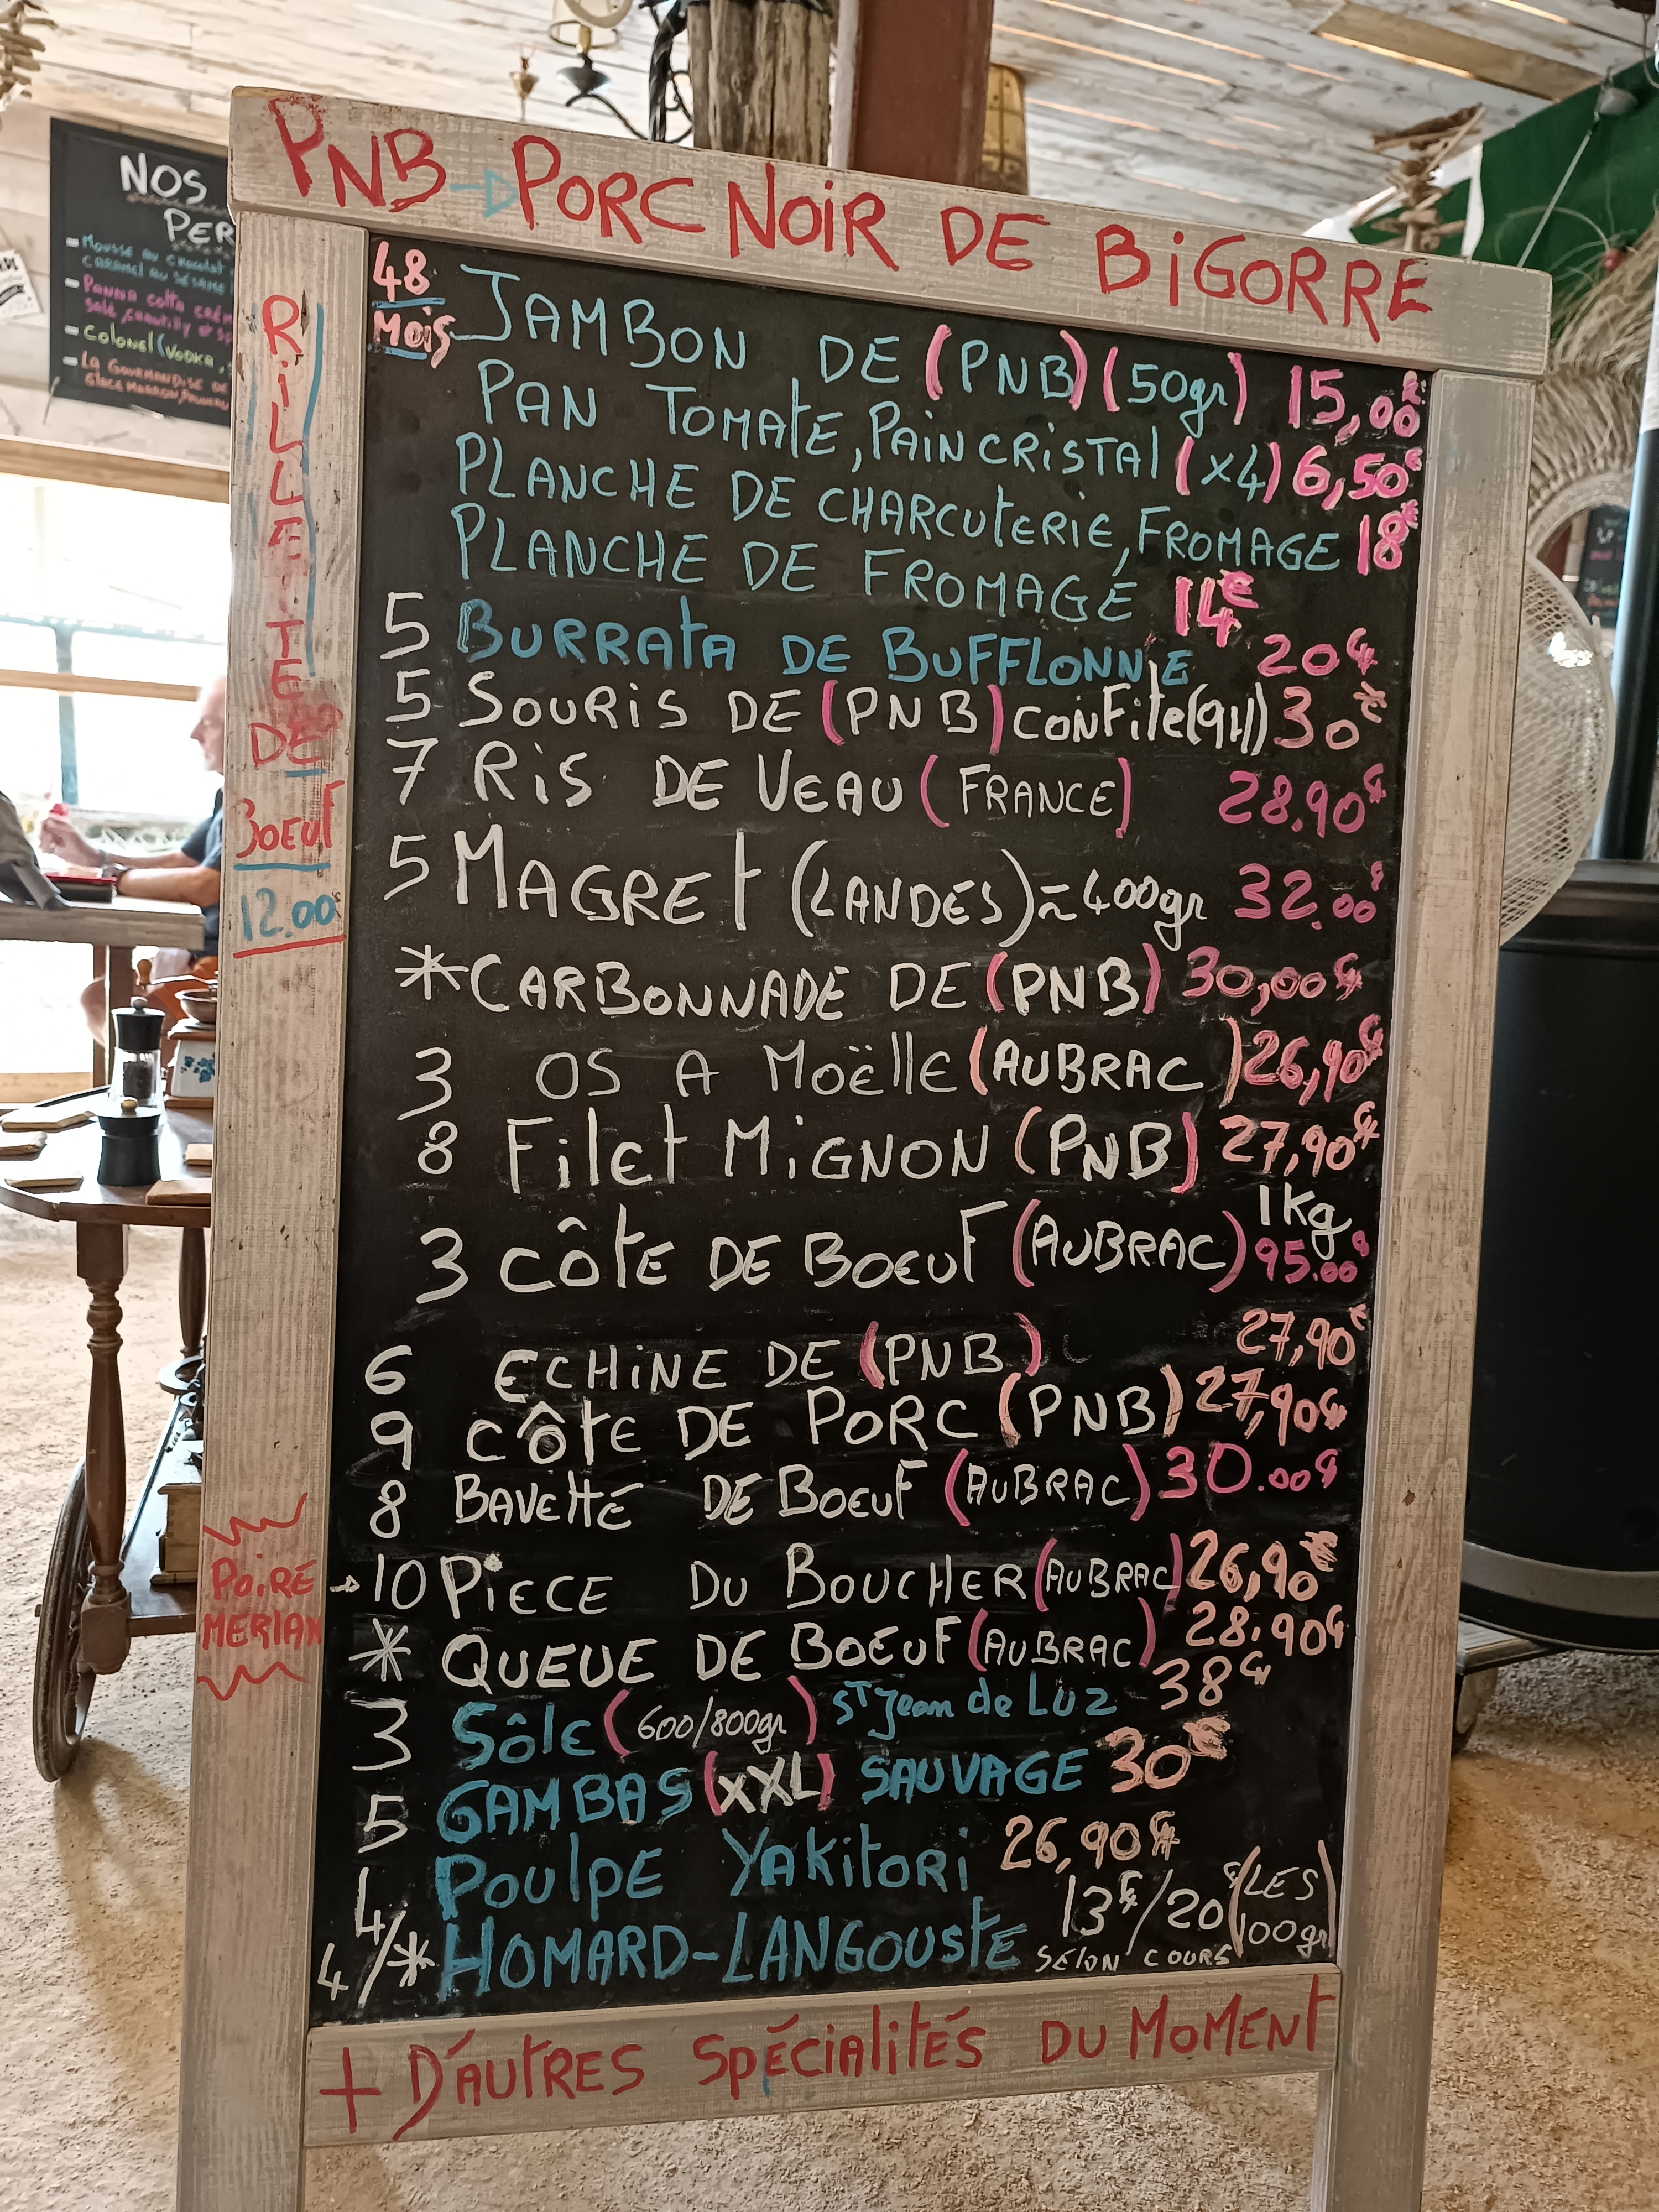 PNB → PORC NOIR DE BIGORRE
NOS
PER
- MOUSSE AU CHOCOLAT
CARAMEL AU SÉSAME
- PANNA COTTA
SALÉ, CHANTILLY ET
- COLONEL (VODKA,
- LA GOURMANDISE DE
GLACE MARRON, PRUNEAU
RILLETTE
DE
BOEUF
12.00€
48
MOIS
JAMBON DE (PNB) (50gr) 15,00€
PAN TOMATE, PAIN CRISTAL (x4) 6,50€
PLANCHE DE CHARCUTERIE, FROMAGE 18€
PLANCHE DE FROMAGE 14€
5 BURRATA DE BUFFLONNE 20€
5 SOURIS DE (PNB) CONFITE (9H) 30€
7 RIS DE VEAU (FRANCE) 28.90€
5 MAGRET (LANDES) ≈ 400gr 32.00€
* CARBONNADE DE (PNB) 30,00€
3 OS A MOËLLE (AUBRAC) 26,90€
8 FILET MIGNON (PNB) 27,90€
1Kg
3 CÔTE DE BOEUF (AUBRAC) 95.00€
6 ECHINE DE (PNB) 27,90€
9 CÔTE DE PORC (PNB) 27,90€
8 BAVETTE DE BOEUF (AUBRAC) 30.00€
POIRE
MERLAN
→ 10 PIECE DU BOUCHER (AUBRAC) 26,90€
* QUEUE DE BOEUF (AUBRAC) 28.90€
3 SÔLE (600/800gr) ST Jean de LUZ 38€
5 GAMBAS (XXL) SAUVAGE 30€
4 POULPE YAKITORI 26,90€
4/* HOMARD-LANGOUSTE 13€/20€ (LES 100gr)
SELON COURS
+ D'AUTRES SPÉCIALITÉS DU MOMENT